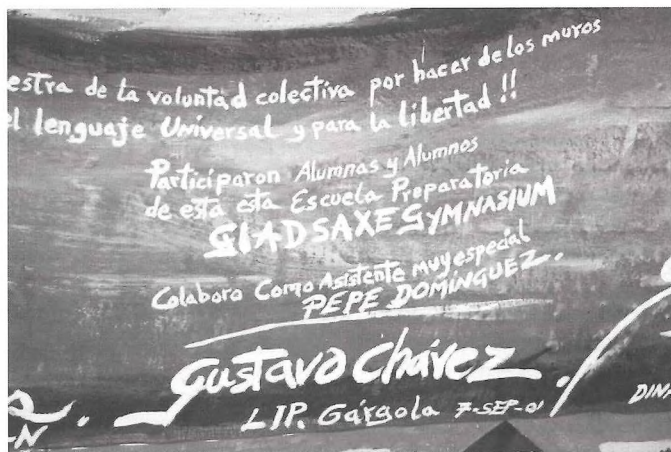 estra de la voluntad colectiva por hacer de los muros
el lenguaje Universal y para la libertad !!
Participaron Alumnas y Alumnos
de esta esta Escuela Preparatoria
GLADSAXE GYMNASIUM
Colaboro Como Asistente muy especial
PEPE DOMÍNGUEZ.
Gustavo Chávez.
LIP. Gárgola 7-SEP-01
-N
DINA